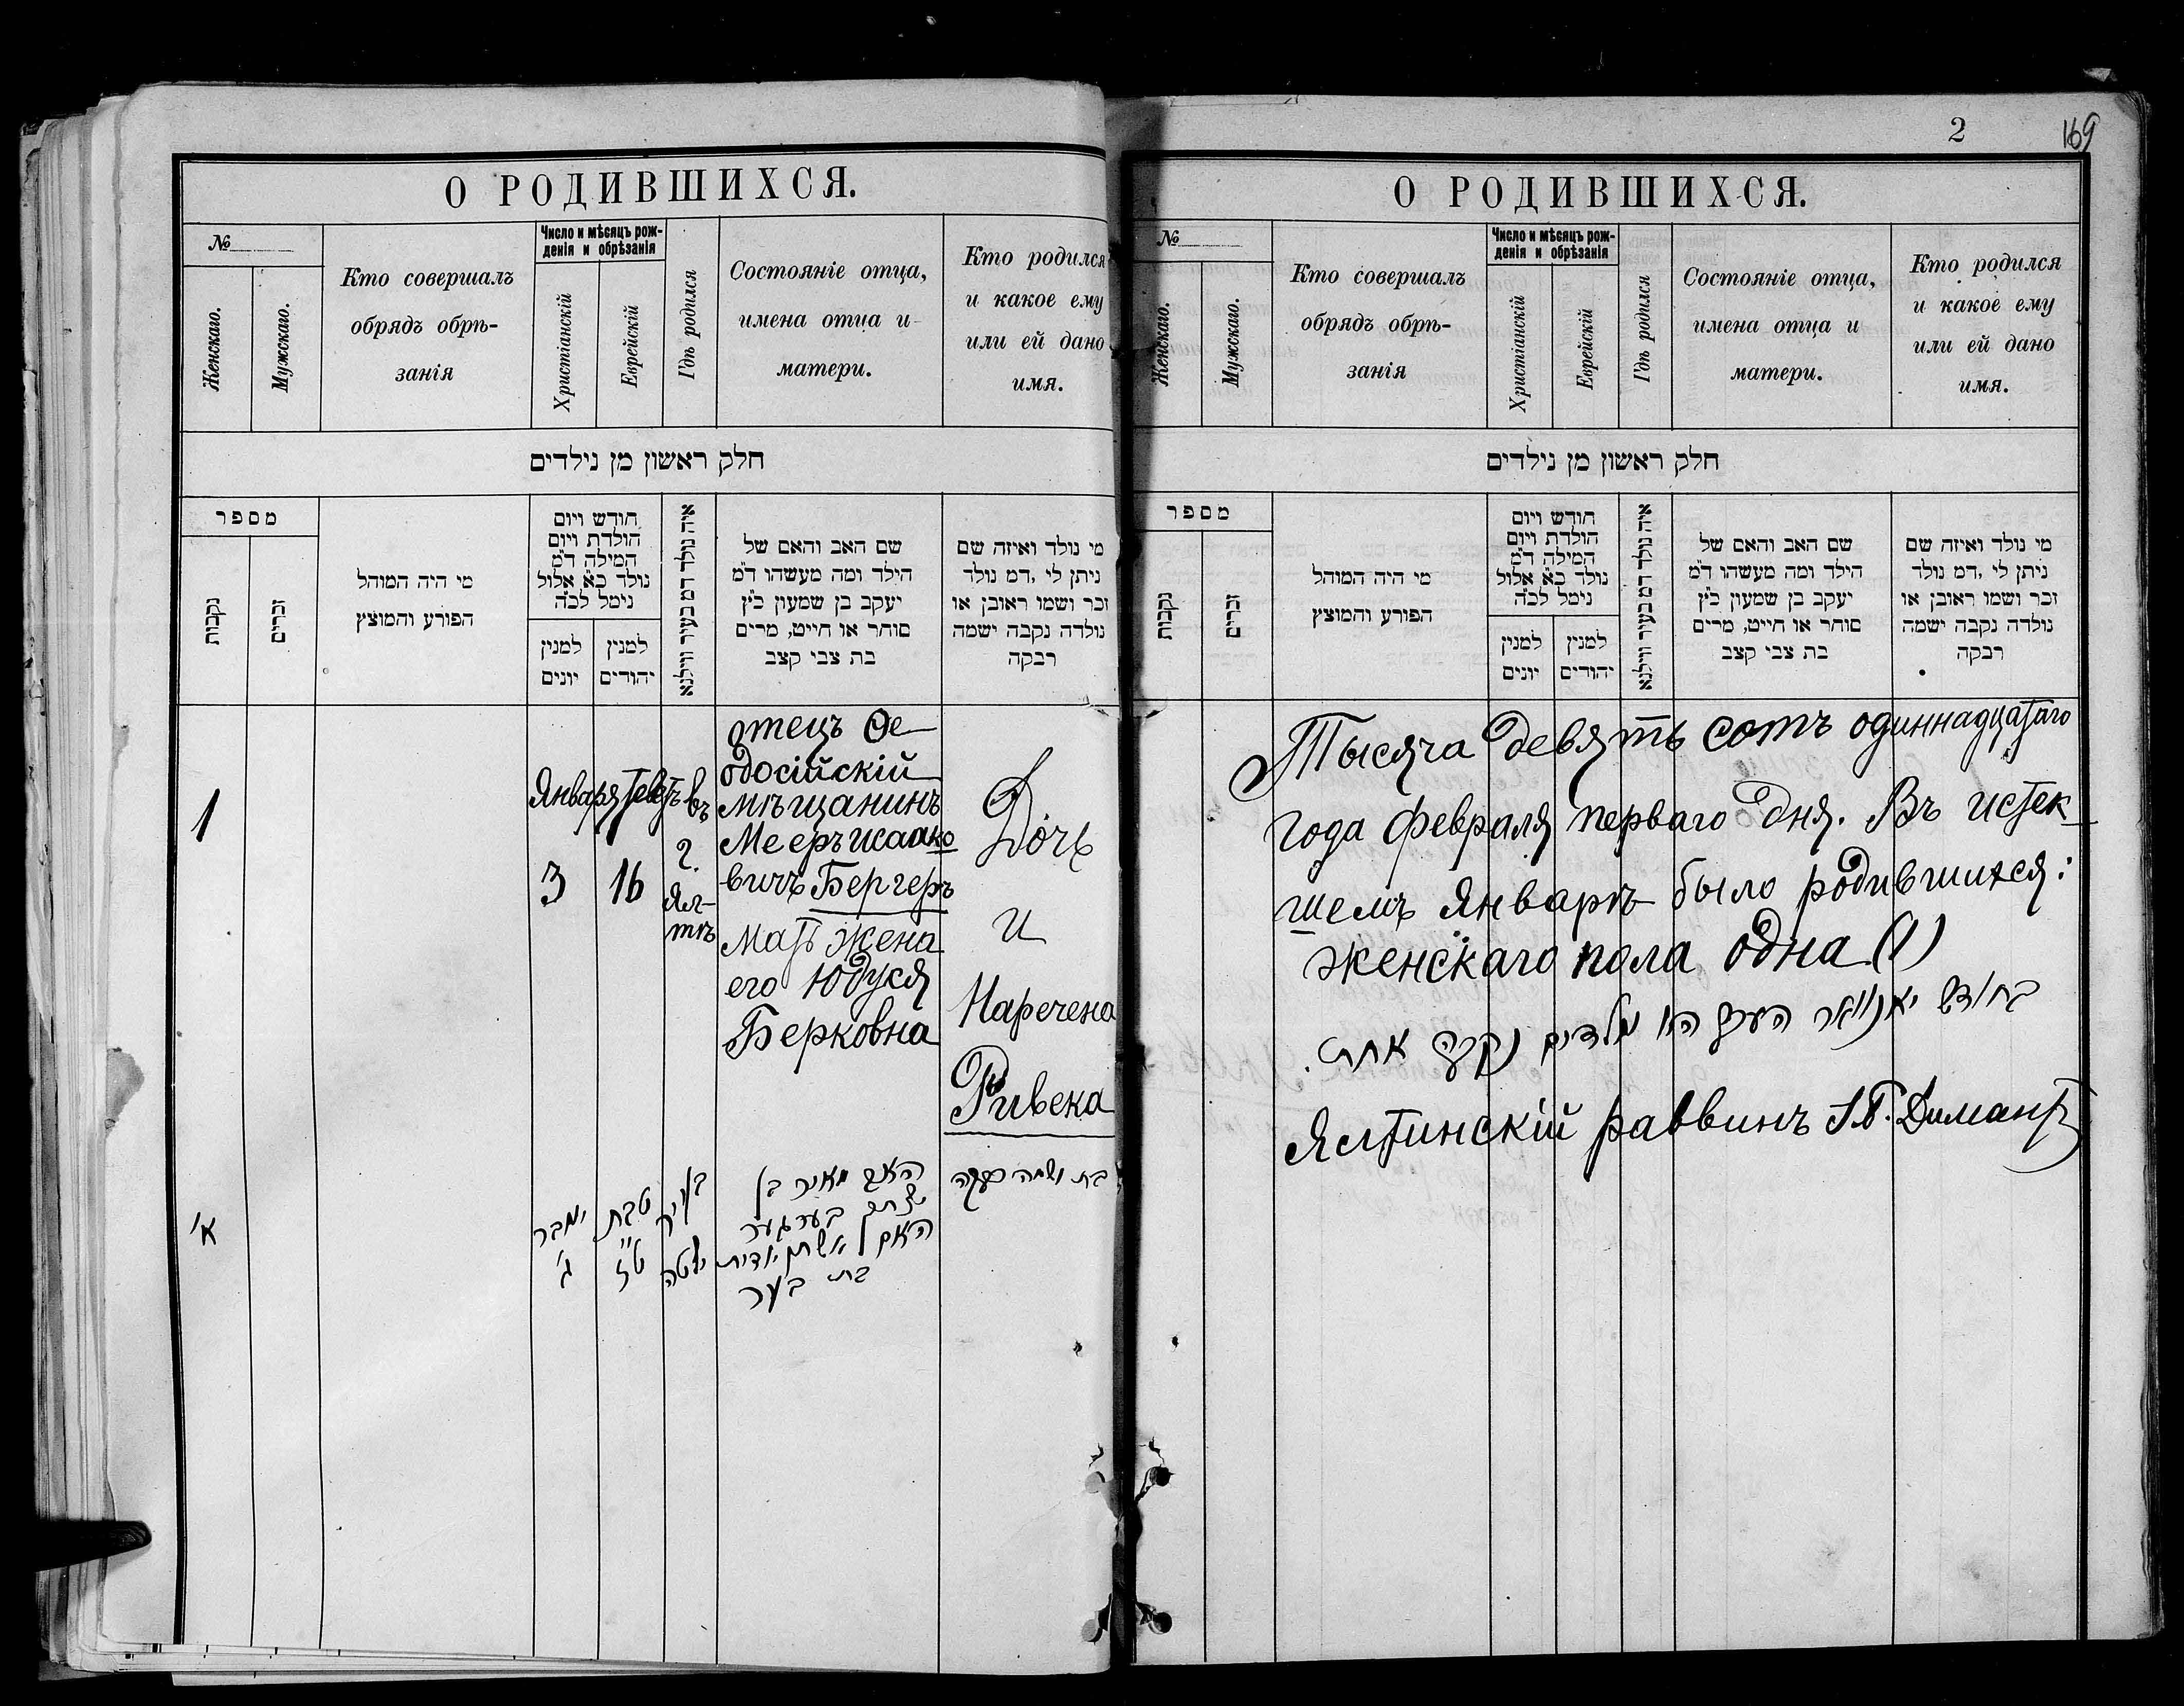 О РОДИВШИХСЯ.
№
Женскаго.
Мужскаго.
Кто совершалъ
обрядъ обрѣ-
занія
Число и мѣсяцъ рож-
денія и обрѣзанія
Христіанскій
Еврейскій
Гдѣ родился
Состояніе отца,
имена отца и
матери.
Кто родился
и какое ему
или ей дано
имя.
חלק ראשון מן נילדים
מספר
נקבות
זכרים
מי היה המוהל
הפורע והמוצץ
חודש ויום
הולדת ויום
המילה ד"מ
נולד כ"א אלול
נימל לכ"ה
למנין
יונים
למנין
יהודים
איה נולד דמ בעיר ווילנא
שם האב והאם של
הילד ומה מעשהו ד"מ
יעקב בן שמעון כ"ץ
סוחר או חייט, מרים
בת צבי קצב
מי נולד ואיזה שם
ניתן לי ,דמ נולד
זכר ושמו ראובן או
נולדה נקבה ישמה
רבקה
1
Января
3
Теветъ
16
въ
г.
Ял-
тѣ
отецъ Ѳе-
одосійскій
мѣщанинъ
Мееръ Исаако
вичъ Бергеръ
Мать жена
его Юдукя
Берковна
Дочь
и
Наречена
Ривека
א'
ינובר
ג'
טבת
ט"ז
בעיר
ילטה
האב מאיר בן
יצחק בערגער
האם אשתו יודית
בת בער
בת ושמה רבקה
2
169
О РОДИВШИХСЯ.
№
Женскаго.
Мужскаго.
Кто совершалъ
обрядъ обрѣ-
занія
Число и мѣсяцъ рож-
денія и обрѣзанія
Христіанскій
Еврейскій
Гдѣ родился
Состояніе отца,
имена отца и
матери.
Кто родился
и какое ему
или ей дано
имя.
חלק ראשון מן נילדים
מספר
נקבות
זכרים
מי היה המוהל
הפורע והמוצץ
חודש ויום
הולדת ויום
המילה ד"מ
נולד כ"א אלול
נימל לכ"ה
למנין
יונים
למנין
יהודים
איה נולד דמ בעיר ווילנא
שם האב והאם של
הילד ומה מעשהו ד"מ
יעקב בן שמעון כ"ץ
סוחר או חייט, מרים
בת צבי קצב
מי נולד ואיזה שם
ניתן לי ,דמ נולד
זכר ושמו ראובן או
נולדה נקבה ישמה
רבקה
Тысяча девять сотъ одиннадцатаго
года февраля перваго дня. Въ истек-
шемъ Январѣ было родившихся:
женскаго пола одна (1)
בחודש יאנוואר העבר היו נולדים נקבה אחת.
Ялтинскій раввинъ Диманъ